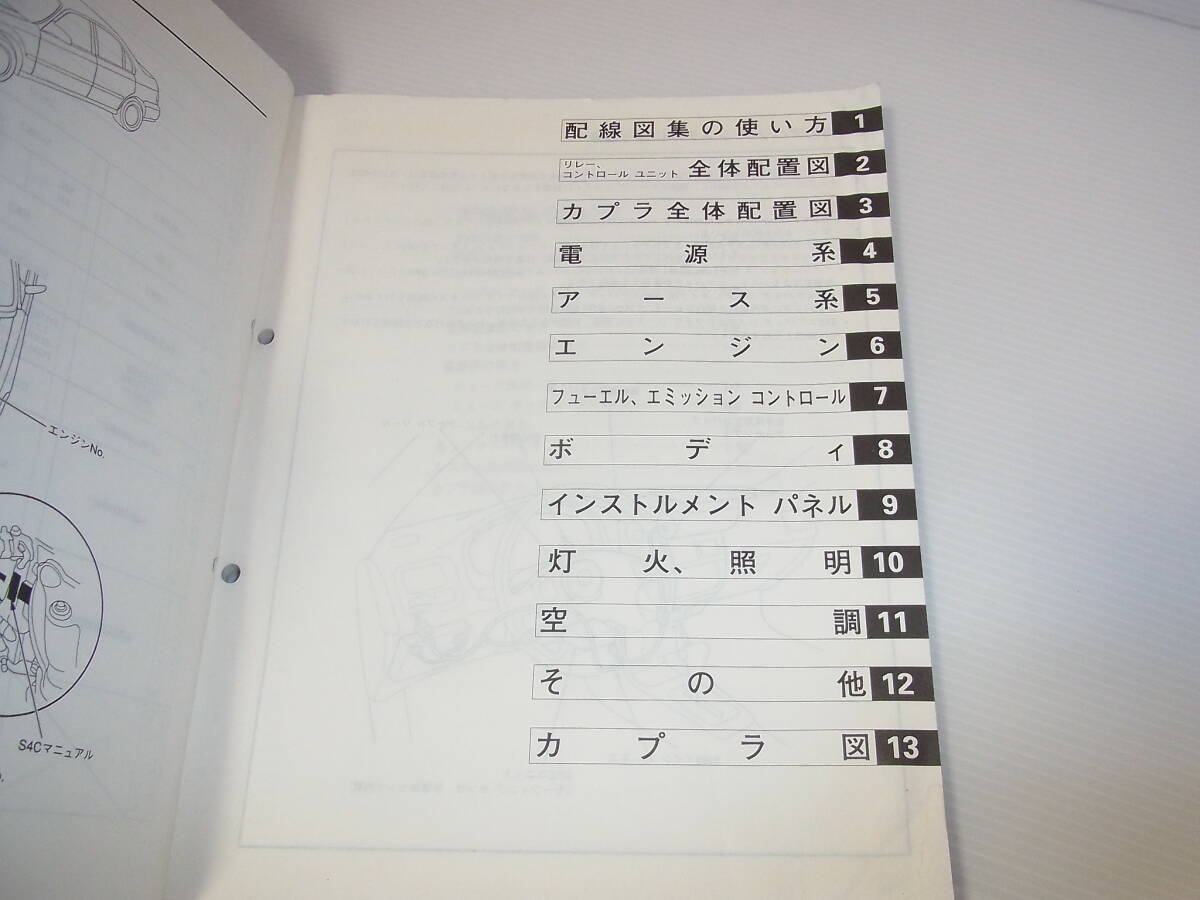 エンジンNo.
S4Cマニュアル
配線図集の使い方 1
リレー、
コントロール ユニット 全体配置図 2
カプラ全体配置図 3
電源系 4
アース系 5
エンジン 6
フューエル、エミッション コントロール 7
ボディ 8
インストルメント パネル 9
灯火、照明 10
空調 11
その他 12
カプラ図 13